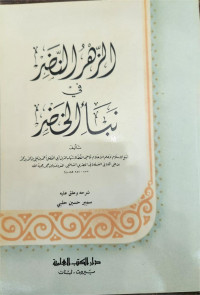 الزهر النضر
في
نبأ الخضر
تأليف
شرحه وعلق عليه
سمير حسين حلبي
دار الكتب العلمية
بيروت - لبنان